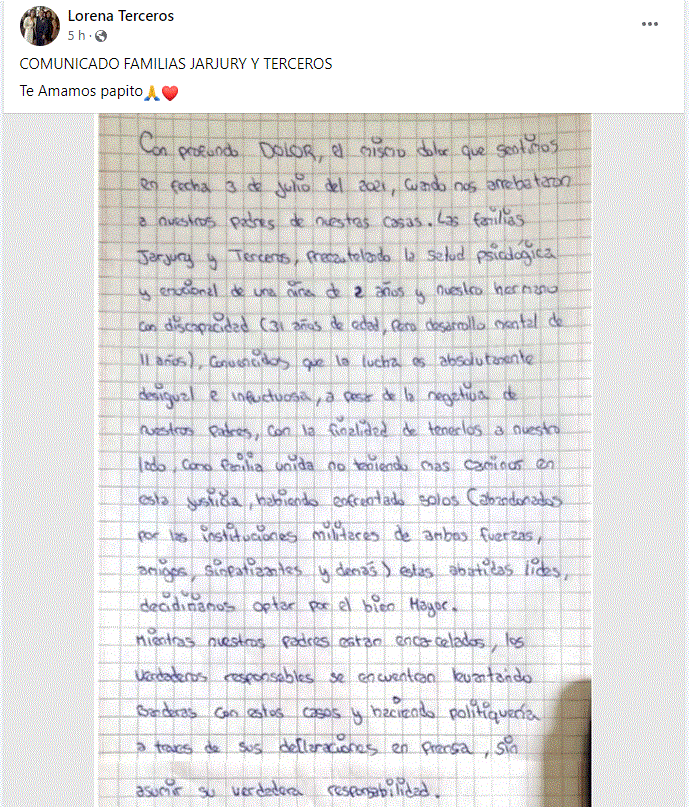 Lorena Terceros
5 h ·
COMUNICADO FAMILIAS JARJURY Y TERCEROS
Te Amamos papito🙏❤️
Con profundo DOLOR, el mismo dolor que sentimos
en fecha 3 de Julio del 2021, cuando nos arrebataron
a nuestros padres de nuestras casas. Las familias
Jarjury y Terceros, precautelando la salud psicológica
y emocional de una niña de 2 años y nuestro hermano
con discapacidad (31 años de edad, pero desarrollo mental de
11 años), convencidos que la lucha es absolutamente
desigual e infructuosa, a pesar de la negativa de
nuestros padres, con la finalidad de tenerlos a nuestro
lado, como familia unida no teniendo mas caminos en
esta justicia, habiendo enfrentado solos (abandonados
por las instituciones militares de ambas fuerzas,
amigos, simpatizantes y demás) estas abatidas lides,
decidimos optar por el bien Mayor.
Mientras nuestros padres estan encarcelados, los
verdaderos responsables se encuentran levantando
Banderas con estos casos y haciendo politiquería
a traves de sus declaraciones en prensa, sin
asumir su verdadera responsabilidad.